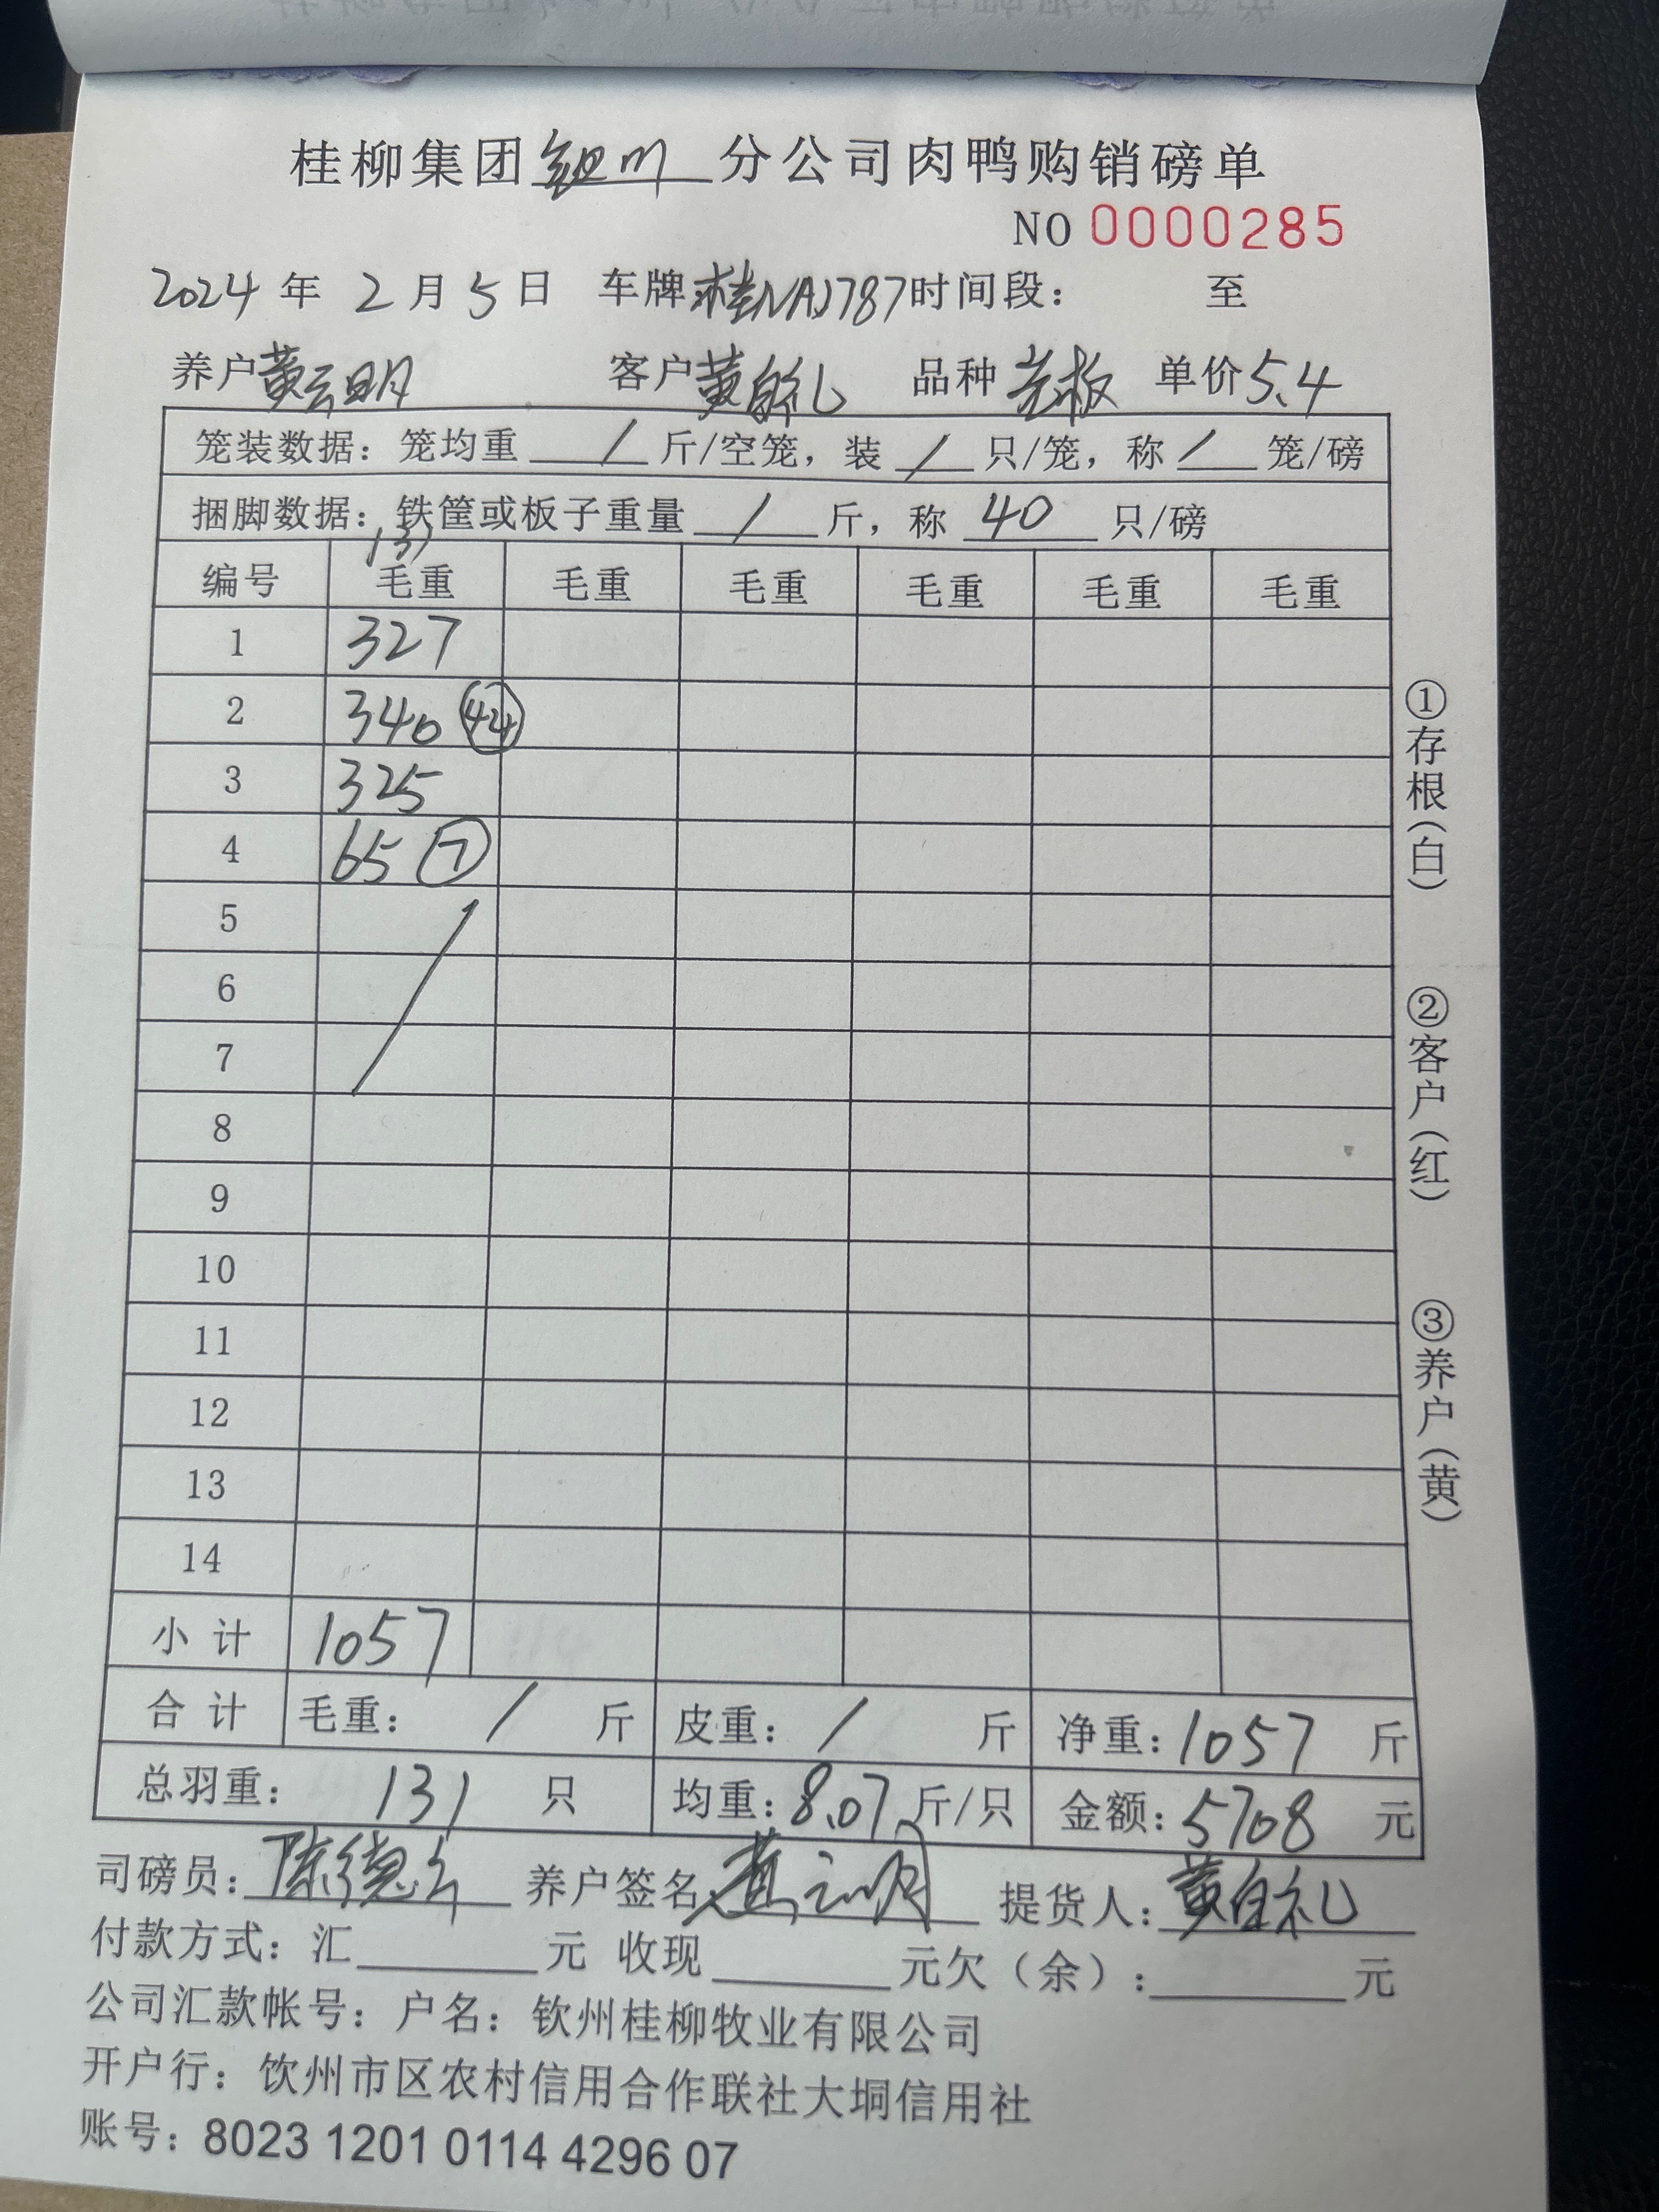 桂柳集团 钦州 分公司肉鸭购销磅单
NO 0000285
2024 年 2 月 5 日 车牌 桂NAJ787 时间段： 至
养户 黄云明 客户 黄自礼 品种 单价 5.4
笼装数据：笼均重 / 斤/空笼，装 / 只/笼，称 / 笼/磅
捆脚数据：铁筐或板子重量 / 斤，称 40 只/磅
131
编号 毛重 毛重 毛重 毛重 毛重 毛重
1 327
2 340 44
3 325
4 65 7
5
6
7
8
9
10
11
12
13
14
小计 1057
合计 毛重： / 斤 皮重： / 斤 净重：1057 斤
总羽重： 131 只 均重：8.07 斤/只 金额：5708 元
司磅员：陈德 养户签名 黄云明 提货人：黄自礼
付款方式：汇 元 收现 元欠（余）： 元
公司汇款帐号：户名：钦州桂柳牧业有限公司
开户行：饮州市区农村信用合作联社大垌信用社
账号：8023 1201 0114 4296 07
①存根（白）
②客户（红）
③养户（黄）